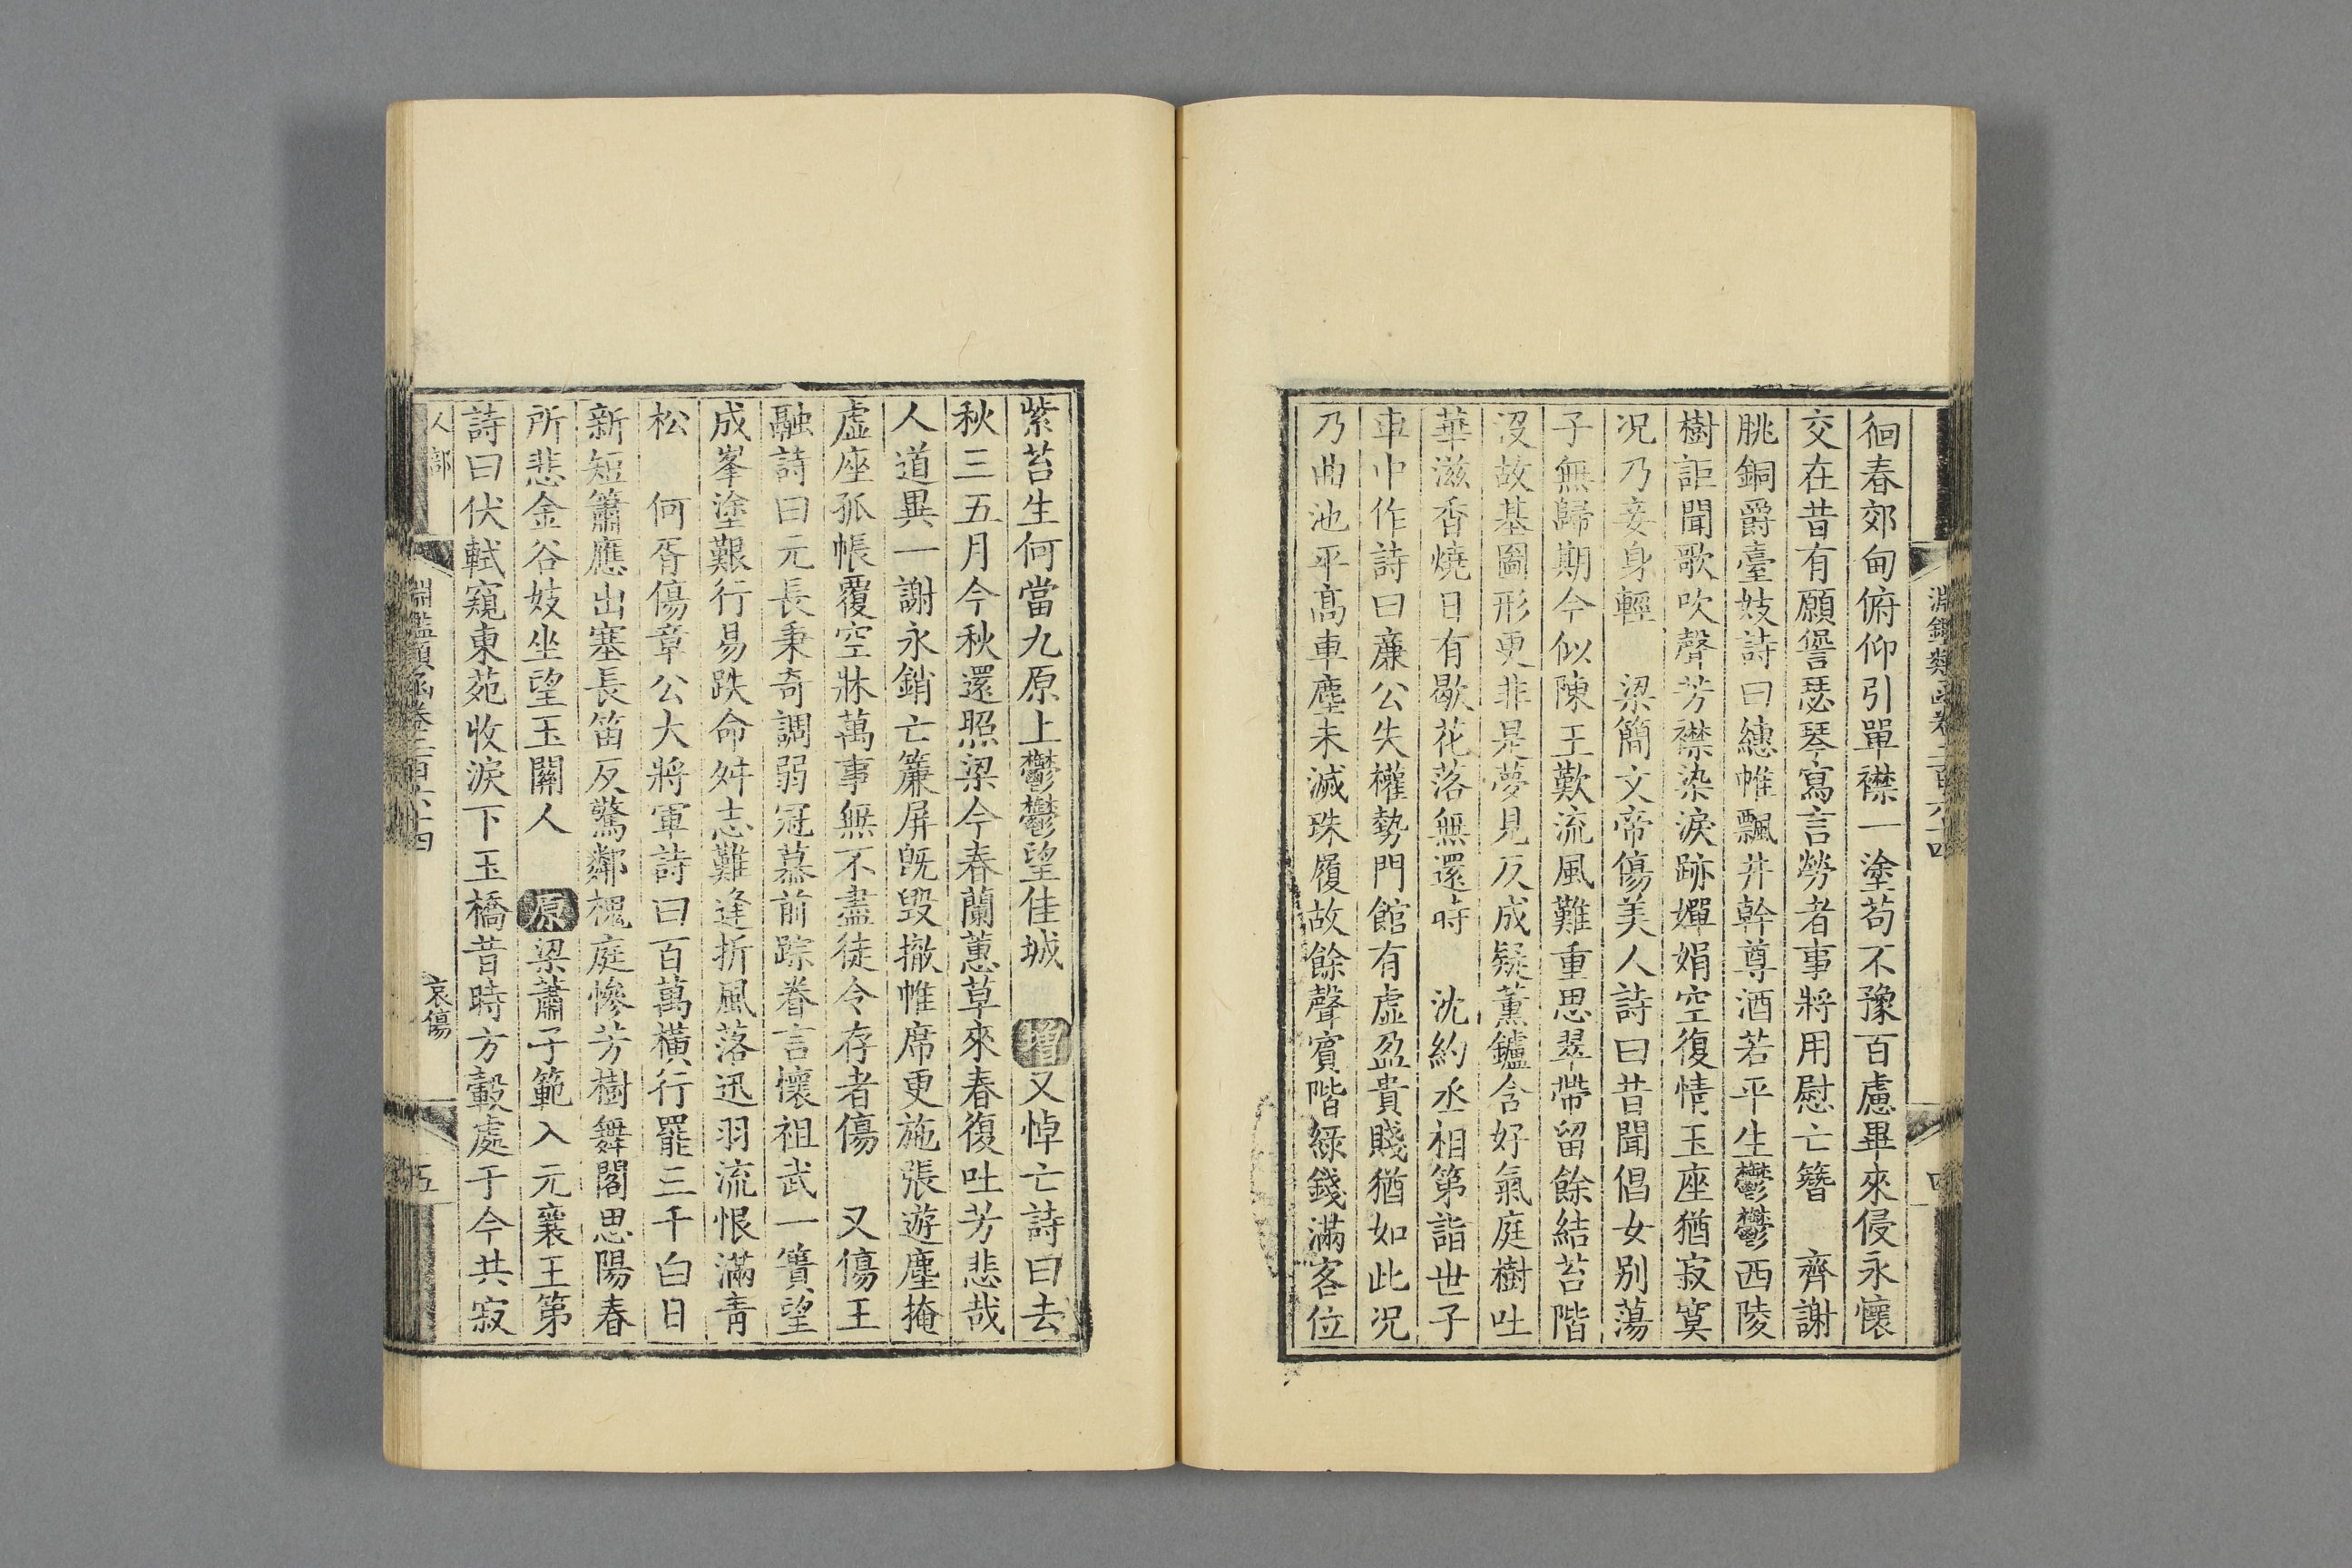 徊春郊甸俯仰引單襟一塗苟不豫百慮畢來侵永懷
交在昔有願諐瑟琴寫言勞者事將用慰亡簪　齊謝
朓銅爵臺妓詩曰繐帷飄井幹尊酒若平生鬱鬱西陵
樹詎聞歌吹聲芳襟染淚跡嬋娟空復情玉座猶寂寞
况乃妾身輕　梁簡文帝傷美人詩曰昔聞倡女別蕩
子無歸期今似陳王歎流風難重思翠帶留餘結苔階
沒故基圖形更非是夢見反成疑薰鑪含好氣庭樹吐
華滋香燒日有歇花落無還時　沈約丞相第詣世子
車中作詩曰廉公失權勢門館有虛盈貴賤猶如此况
乃曲池平高車塵未滅珠履故餘聲賓階綠錢滿客位
淵鑑類函卷二百六十四
四
紫苔生何當九原上鬱鬱望佳城　增又悼亡詩曰去
秋三五月今秋還照梁今春蘭蕙草來春復吐芳悲哉
人道異一謝永銷亡簾屏旣毀撤帷席更施張遊塵掩
虛座孤帳覆空牀萬事無不盡徒令存者傷　又傷王
融詩曰元長秉奇調弱冠慕前踪眷言懷祖武一簣望
成峯塗艱行易跌命舛志難逢折風落迅羽流恨滿青
松　何胥傷章公大將軍詩曰百萬橫行罷三千白日
新短簫應出塞長笛反驚鄰槐庭慘芳樹舞閣思陽春
所悲金谷妓坐望玉關人　原梁蕭子範入元襄王第
詩曰伏軾窺東苑收淚下玉橋昔時方轂處于今共寂
人部
淵鑑類函卷二百六十四
哀傷
五